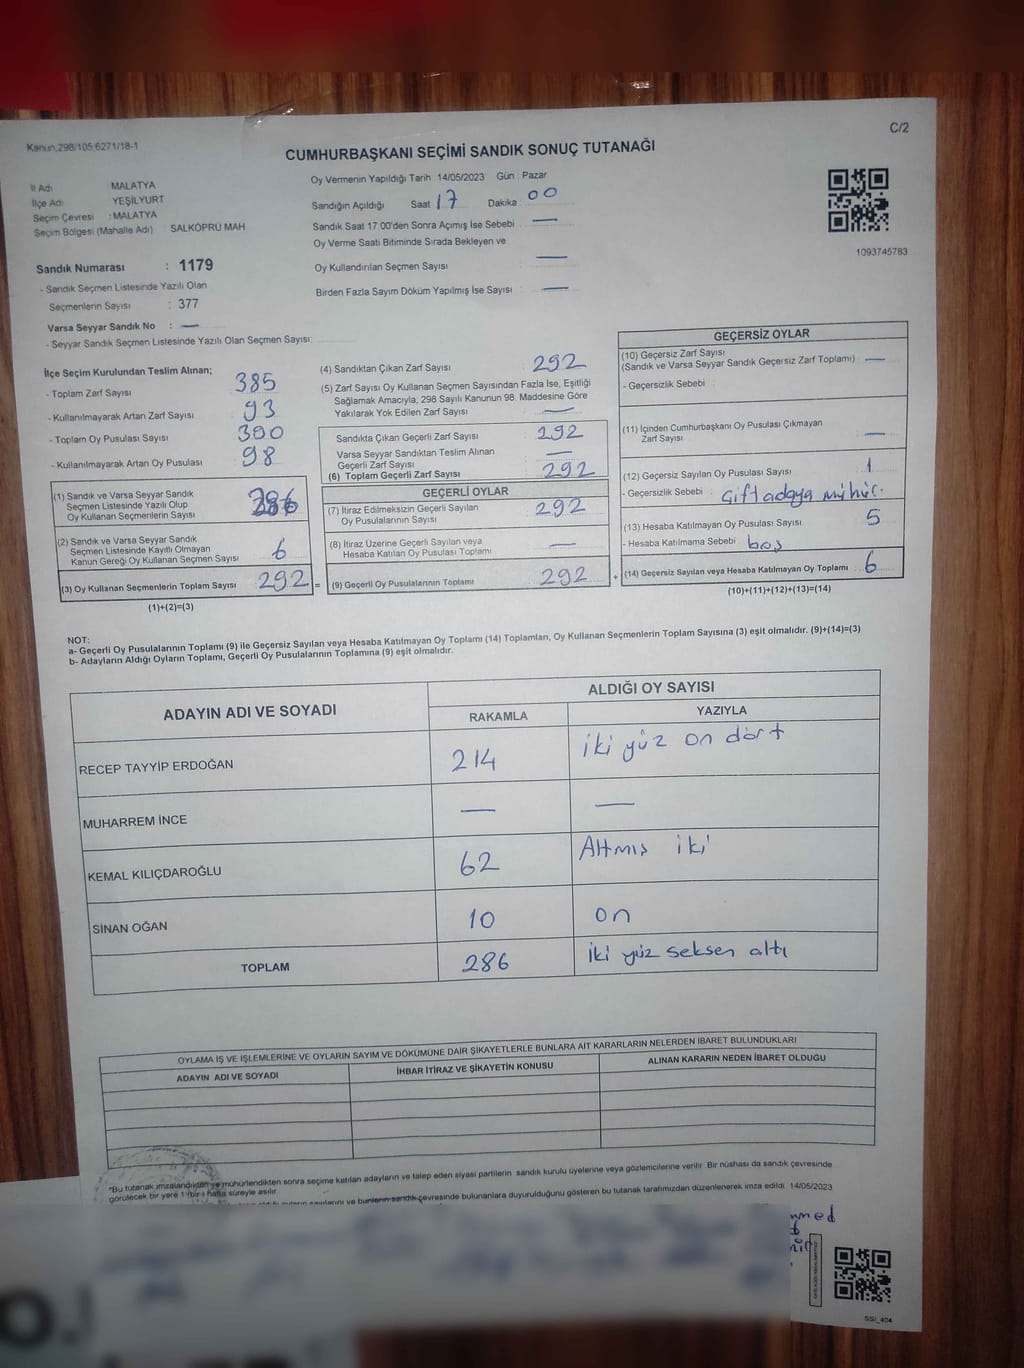 C/2
Kanun.298/105;6271/18-1
CUMHURBAŞKANI SEÇİMİ SANDIK SONUÇ TUTANAĞI
İl Adı MALATYA
İlçe Adı YEŞİLYURT
Seçim Çevresi : MALATYA
Seçim Bölgesi (Mahalle Adı) SALKÖPRÜ MAH
Oy Vermenin Yapıldığı Tarih 14/05/2023 Gün : Pazar
Sandığın Açıldığı Saat 17 Dakika 00
Sandık Saat 17:00'den Sonra Açımış İse Sebebi —
Oy Verme Saati Bitiminde Sırada Bekleyen ve
Oy Kullandırılan Seçmen Sayısı —
Birden Fazla Sayım Döküm Yapılmış İse Sayısı —
1093745783
Sandık Numarası : 1179
- Sandık Seçmen Listesinde Yazılı Olan
Seçmenlerin Sayısı : 377
Varsa Seyyar Sandık No : —
- Seyyar Sandık Seçmen Listesinde Yazılı Olan Seçmen Sayısı:
İlçe Seçim Kurulundan Teslim Alınan;
- Toplam Zarf Sayısı 385
- Kullanılmayarak Artan Zarf Sayısı 93
- Toplam Oy Pusulası Sayısı 390
- Kullanılmayarak Artan Oy Pusulası 98
(1) Sandık ve Varsa Seyyar Sandık
Seçmen Listesinde Yazılı Olup
Oy Kullanan Seçmenlerin Sayısı 286
(2) Sandık ve Varsa Seyyar Sandık
Seçmen Listesinde Kayıtlı Olmayan
Kanun Gereği Oy Kullanan Seçmen Sayısı 6
(3) Oy Kullanan Seçmenlerin Toplam Sayısı 292 =
(1)+(2)=(3)
(4) Sandıktan Çıkan Zarf Sayısı 292
(5) Zarf Sayısı Oy Kullanan Seçmen Sayısından Fazla İse, Eşitliği
Sağlamak Amacıyla; 298 Sayılı Kanunun 98. Maddesine Göre
Yakılarak Yok Edilen Zarf Sayısı —
Sandıkta Çıkan Geçerli Zarf Sayısı 292
Varsa Seyyar Sandıktan Teslim Alınan
Geçerli Zarf Sayısı —
(6) Toplam Geçerli Zarf Sayısı 292
GEÇERLİ OYLAR
(7) İtiraz Edilmeksizin Geçerli Sayılan
Oy Pusulalarının Sayısı 292
(8) İtiraz Üzerine Geçerli Sayılan veya
Hesaba Katılan Oy Pusulası Toplamı —
(9) Geçerli Oy Pusulalarının Toplamı 292 +
GEÇERSİZ OYLAR
(10) Geçersiz Zarf Sayısı
(Sandık ve Varsa Seyyar Sandık Geçersiz Zarf Toplamı) —
- Geçersizlik Sebebi
(11) İçinden Cumhurbaşkanı Oy Pusulası Çıkmayan
Zarf Sayısı —
(12) Geçersiz Sayılan Oy Pusulası Sayısı 1
- Geçersizlik Sebebi : Çift adaya mühür.
(13) Hesaba Katılmayan Oy Pusulası Sayısı 5
- Hesaba Katılmama Sebebi : boş
(14) Geçersiz Sayılan veya Hesaba Katılmayan Oy Toplamı 6
(10)+(11)+(12)+(13)=(14)
NOT:
a- Geçerli Oy Pusulalarının Toplamı (9) ile Geçersiz Sayılan veya Hesaba Katılmayan Oy Toplamı (14) Toplamları, Oy Kullanan Seçmenlerin Toplam Sayısına (3) eşit olmalıdır. (9)+(14)=(3)
b- Adayların Aldığı Oyların Toplamı, Geçerli Oy Pusulalarının Toplamına (9) eşit olmalıdır.
ADAYIN ADI VE SOYADI ALDIĞI OY SAYISI
RAKAMLA YAZIYLA
RECEP TAYYİP ERDOĞAN 214 iki yüz on dört
MUHARREM İNCE — —
KEMAL KILIÇDAROĞLU 62 Altmış iki
SİNAN OĞAN 10 on
TOPLAM 286 iki yüz seksen altı
OYLAMA İŞ VE İŞLEMLERİNE VE OYLARIN SAYIM VE DÖKÜMÜNE DAİR ŞİKAYETLERLE BUNLARA AİT KARARLARIN NELERDEN İBARET BULUNDUKLARI
ADAYIN ADI VE SOYADI İHBAR İTİRAZ VE ŞİKAYETİN KONUSU ALINAN KARARIN NEDEN İBARET OLDUĞU
*Bu tutanak imzalandıktan ve mühürlendikten sonra seçime katılan adayların ve talep eden siyasi partilerin sandık kurulu üyelerine veya gözlemcilerine verilir. Bir nüshası da sandık çevresinde
görülecek bir yere 1 (bir) hafta süreyle asılır.
sayılarını ve bunların sandık çevresinde bulunanlara duyurulduğunu gösteren bu tutanak tarafımızdan düzenlenerek imza edildi. 14/05/2023
SSI_404